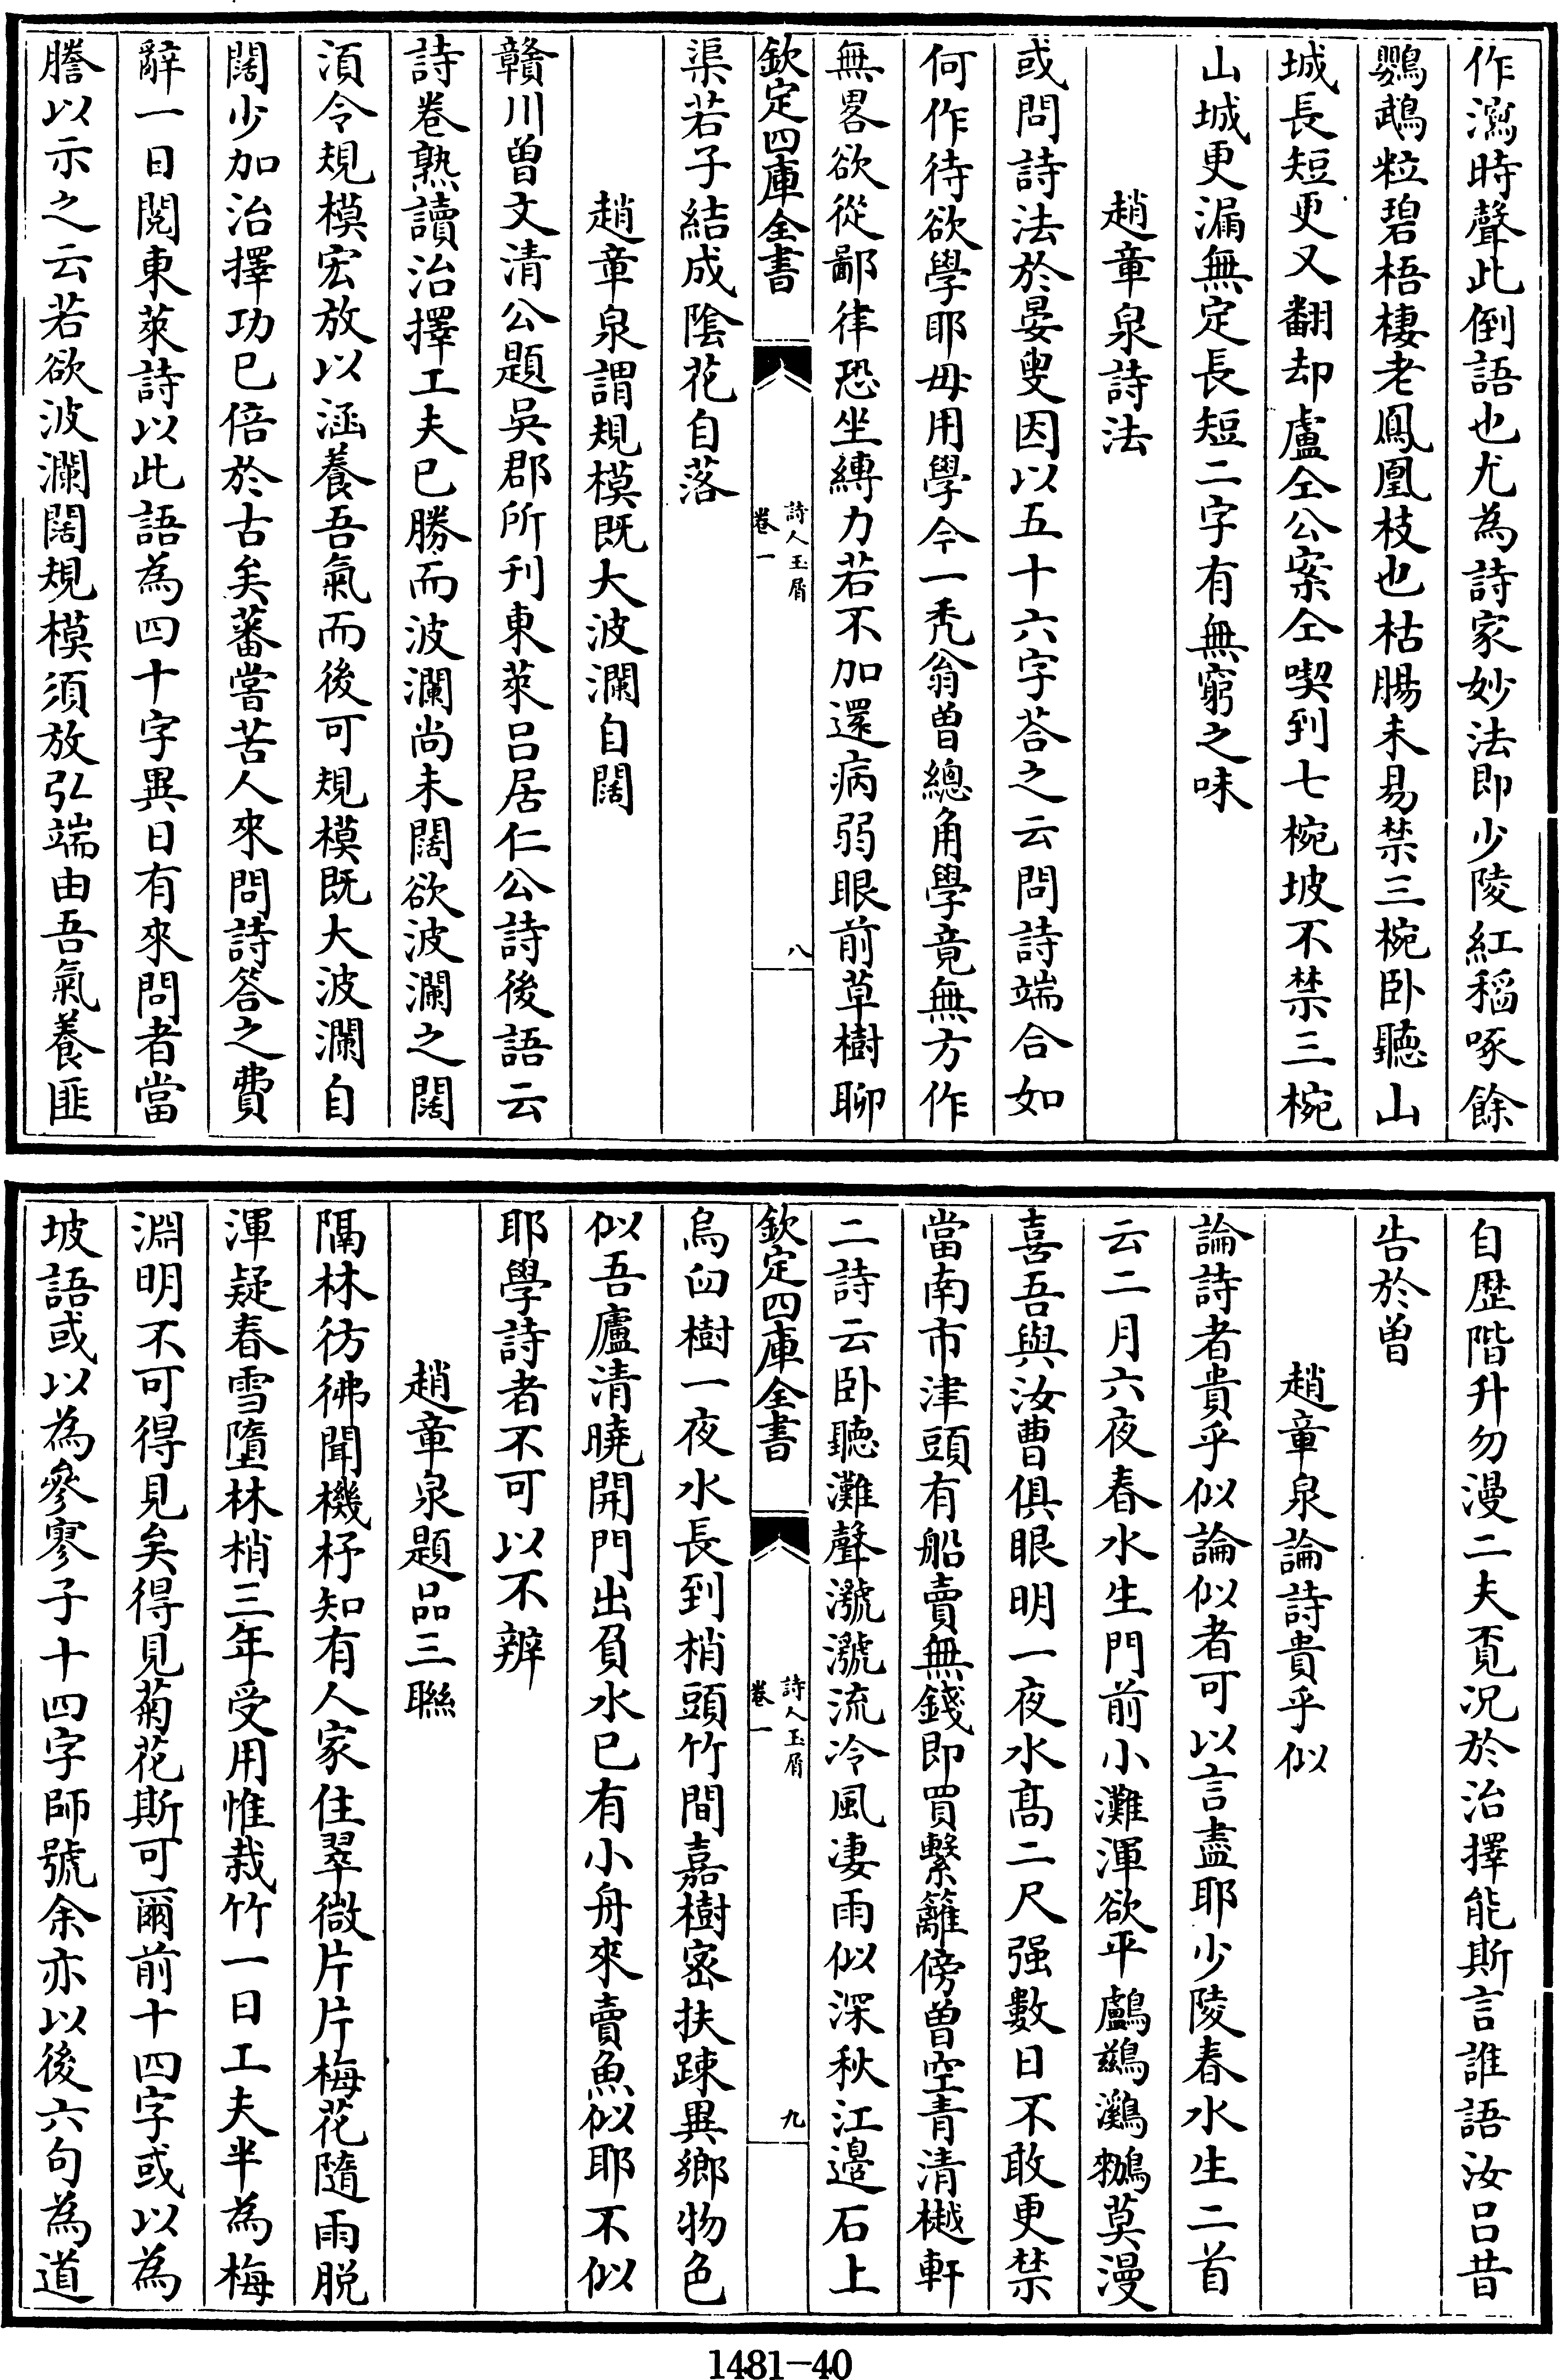 作瀉時聲此倒語也尤為詩家妙法即少陵紅稻啄餘
鸚鵡粒碧梧棲老鳳凰枝也枯腸未易禁三椀卧聽山
城長短更又翻却盧仝公案仝喫到七椀坡不禁三椀
山城更漏無定長短二字有無窮之味
趙章泉詩法
或問詩法於晏叟因以五十六字荅之云問詩端合如
何作待欲學耶毋用學今一禿翁曾總角學竟無方作
無畧欲從鄙律恐坐縛力若不加還病弱眼前草樹聊
欽定四庫全書
詩人玉屑
卷一
八
渠若子結成陰花自落
趙章泉謂規模既大波瀾自闊
贛川曾文清公題吳郡所刊東萊呂居仁公詩後語云
詩卷熟讀治擇工夫已勝而波瀾尚未闊欲波瀾之闊
湏令規模宏放以涵養吾氣而後可規模既大波瀾自
闊少加治擇功已倍於古矣蕃嘗苦人來問詩答之費
辭一日閱東萊詩以此語為四十字異日有來問者當
謄以示之云若欲波瀾闊規模須放弘端由吾氣養匪
自歴階升勿漫二夫覔况於治擇能斯言誰語汝呂昔
告於曾
趙章泉論詩貴乎似
論詩者貴乎似論似者可以言盡耶少陵春水生二首
云二月六夜春水生門前小灘渾欲平鸕鷀鸂鶒莫漫
喜吾與汝曹俱眼明一夜水髙二尺强數日不敢更禁
當南市津頭有船賣無錢即買繫籬傍曾空青清樾軒
二詩云卧聽灘聲㶁㶁流冷風凄雨似深秋江邉石上
欽定四庫全書
詩人玉屑
卷一
九
烏臼樹一夜水長到梢頭竹間嘉樹宻扶踈異鄉物色
似吾廬清曉開門出負水已有小舟來賣魚似耶不似
耶學詩者不可以不辨
趙章泉題品三聯
隔林彷彿聞機杼知有人家住翠微片片梅花隨雨脱
渾疑春雪墮林梢三年受用惟栽竹一日工夫半為梅
淵明不可得見矣得見菊花斯可爾前十四字或以為
坡語或以為參寥子十四字師號余亦以後六句為道
1481-40